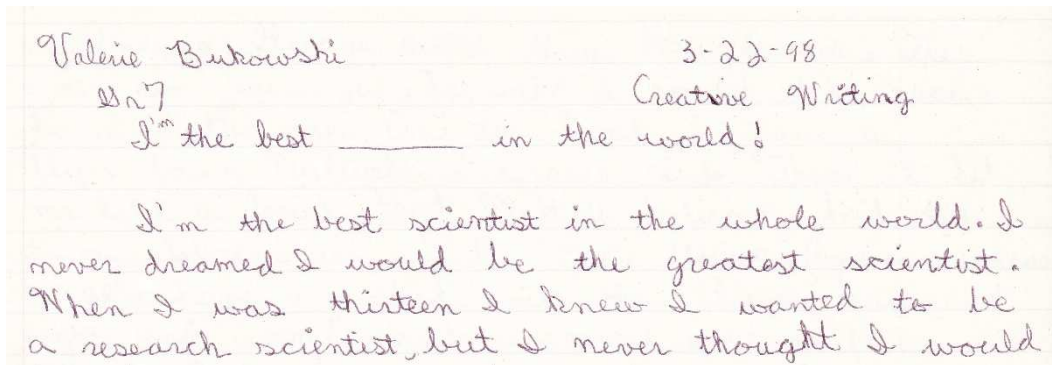 Valerie Bukowski 3-22-98
Gr 7 Creative Writing
I'm the best ______ in the world!
I'm the best scientist in the whole world. I
never dreamed I would be the greatest scientist.
When I was thirteen I knew I wanted to be
a research scientist, but I never thought I would